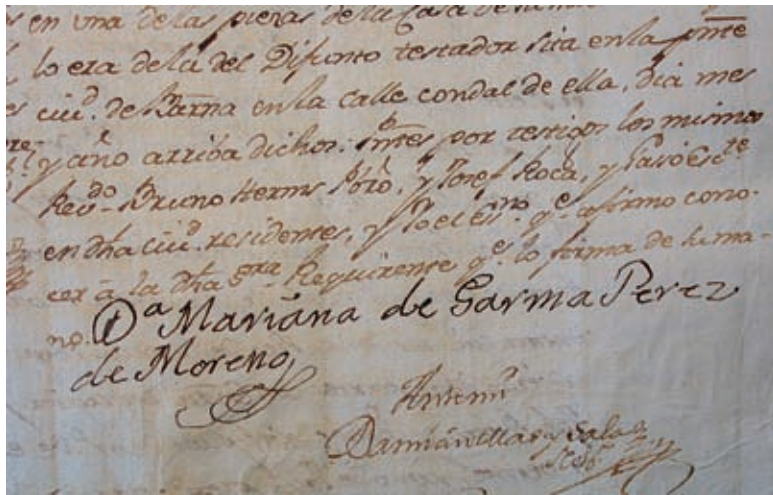 en una de las piezas de la Casa de
lo era de la del Difunto testador sita en la pnte
ciud. de Barna en la calle condal de ella, dia mes
y año arriba dichos: Sntes por testigos los mismos
Revdo. Bruno Herms Pbro, y Josef Roca, y
en dha ciud. residentes, y Yo el Esno. qe. afirmo cono-
cer à la dha Sra. Requirente qe. lo firma de su ma-
no. Da Mariana de Garma Perez
de Moreno
Antemi
Damian y Sala